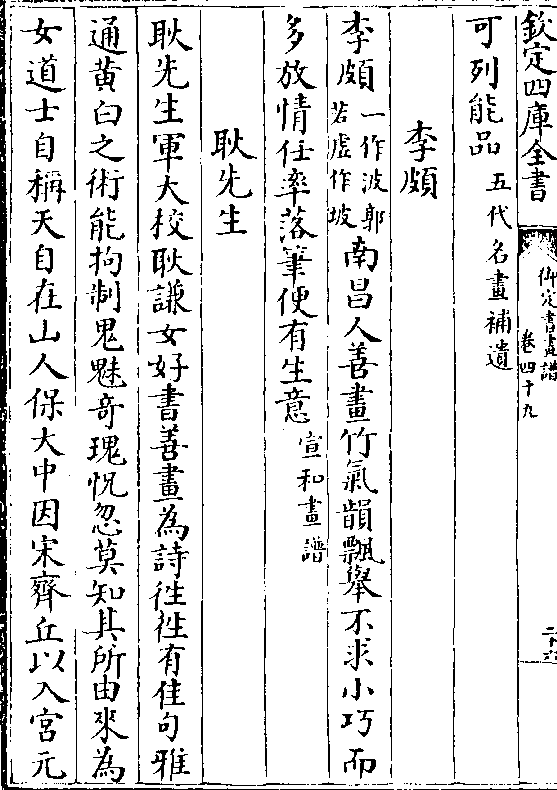 欽定四庫全書
御定書畫譜
卷四十九
可列能品 五代名畫補遺
李頗
李頗 一作波郭若虛作坡 南昌人善畫竹氣韻飄舉不求小巧而
多放情任率落筆便有生意 宣和畫譜
耿先生
耿先生軍大校耿謙女好書善畫為詩徃徃有佳句雅
通黄白之術能拘制鬼魅奇瑰怳忽莫知其所由來為
女道士自稱天自在山人保大中因宋齊丘以入宮元